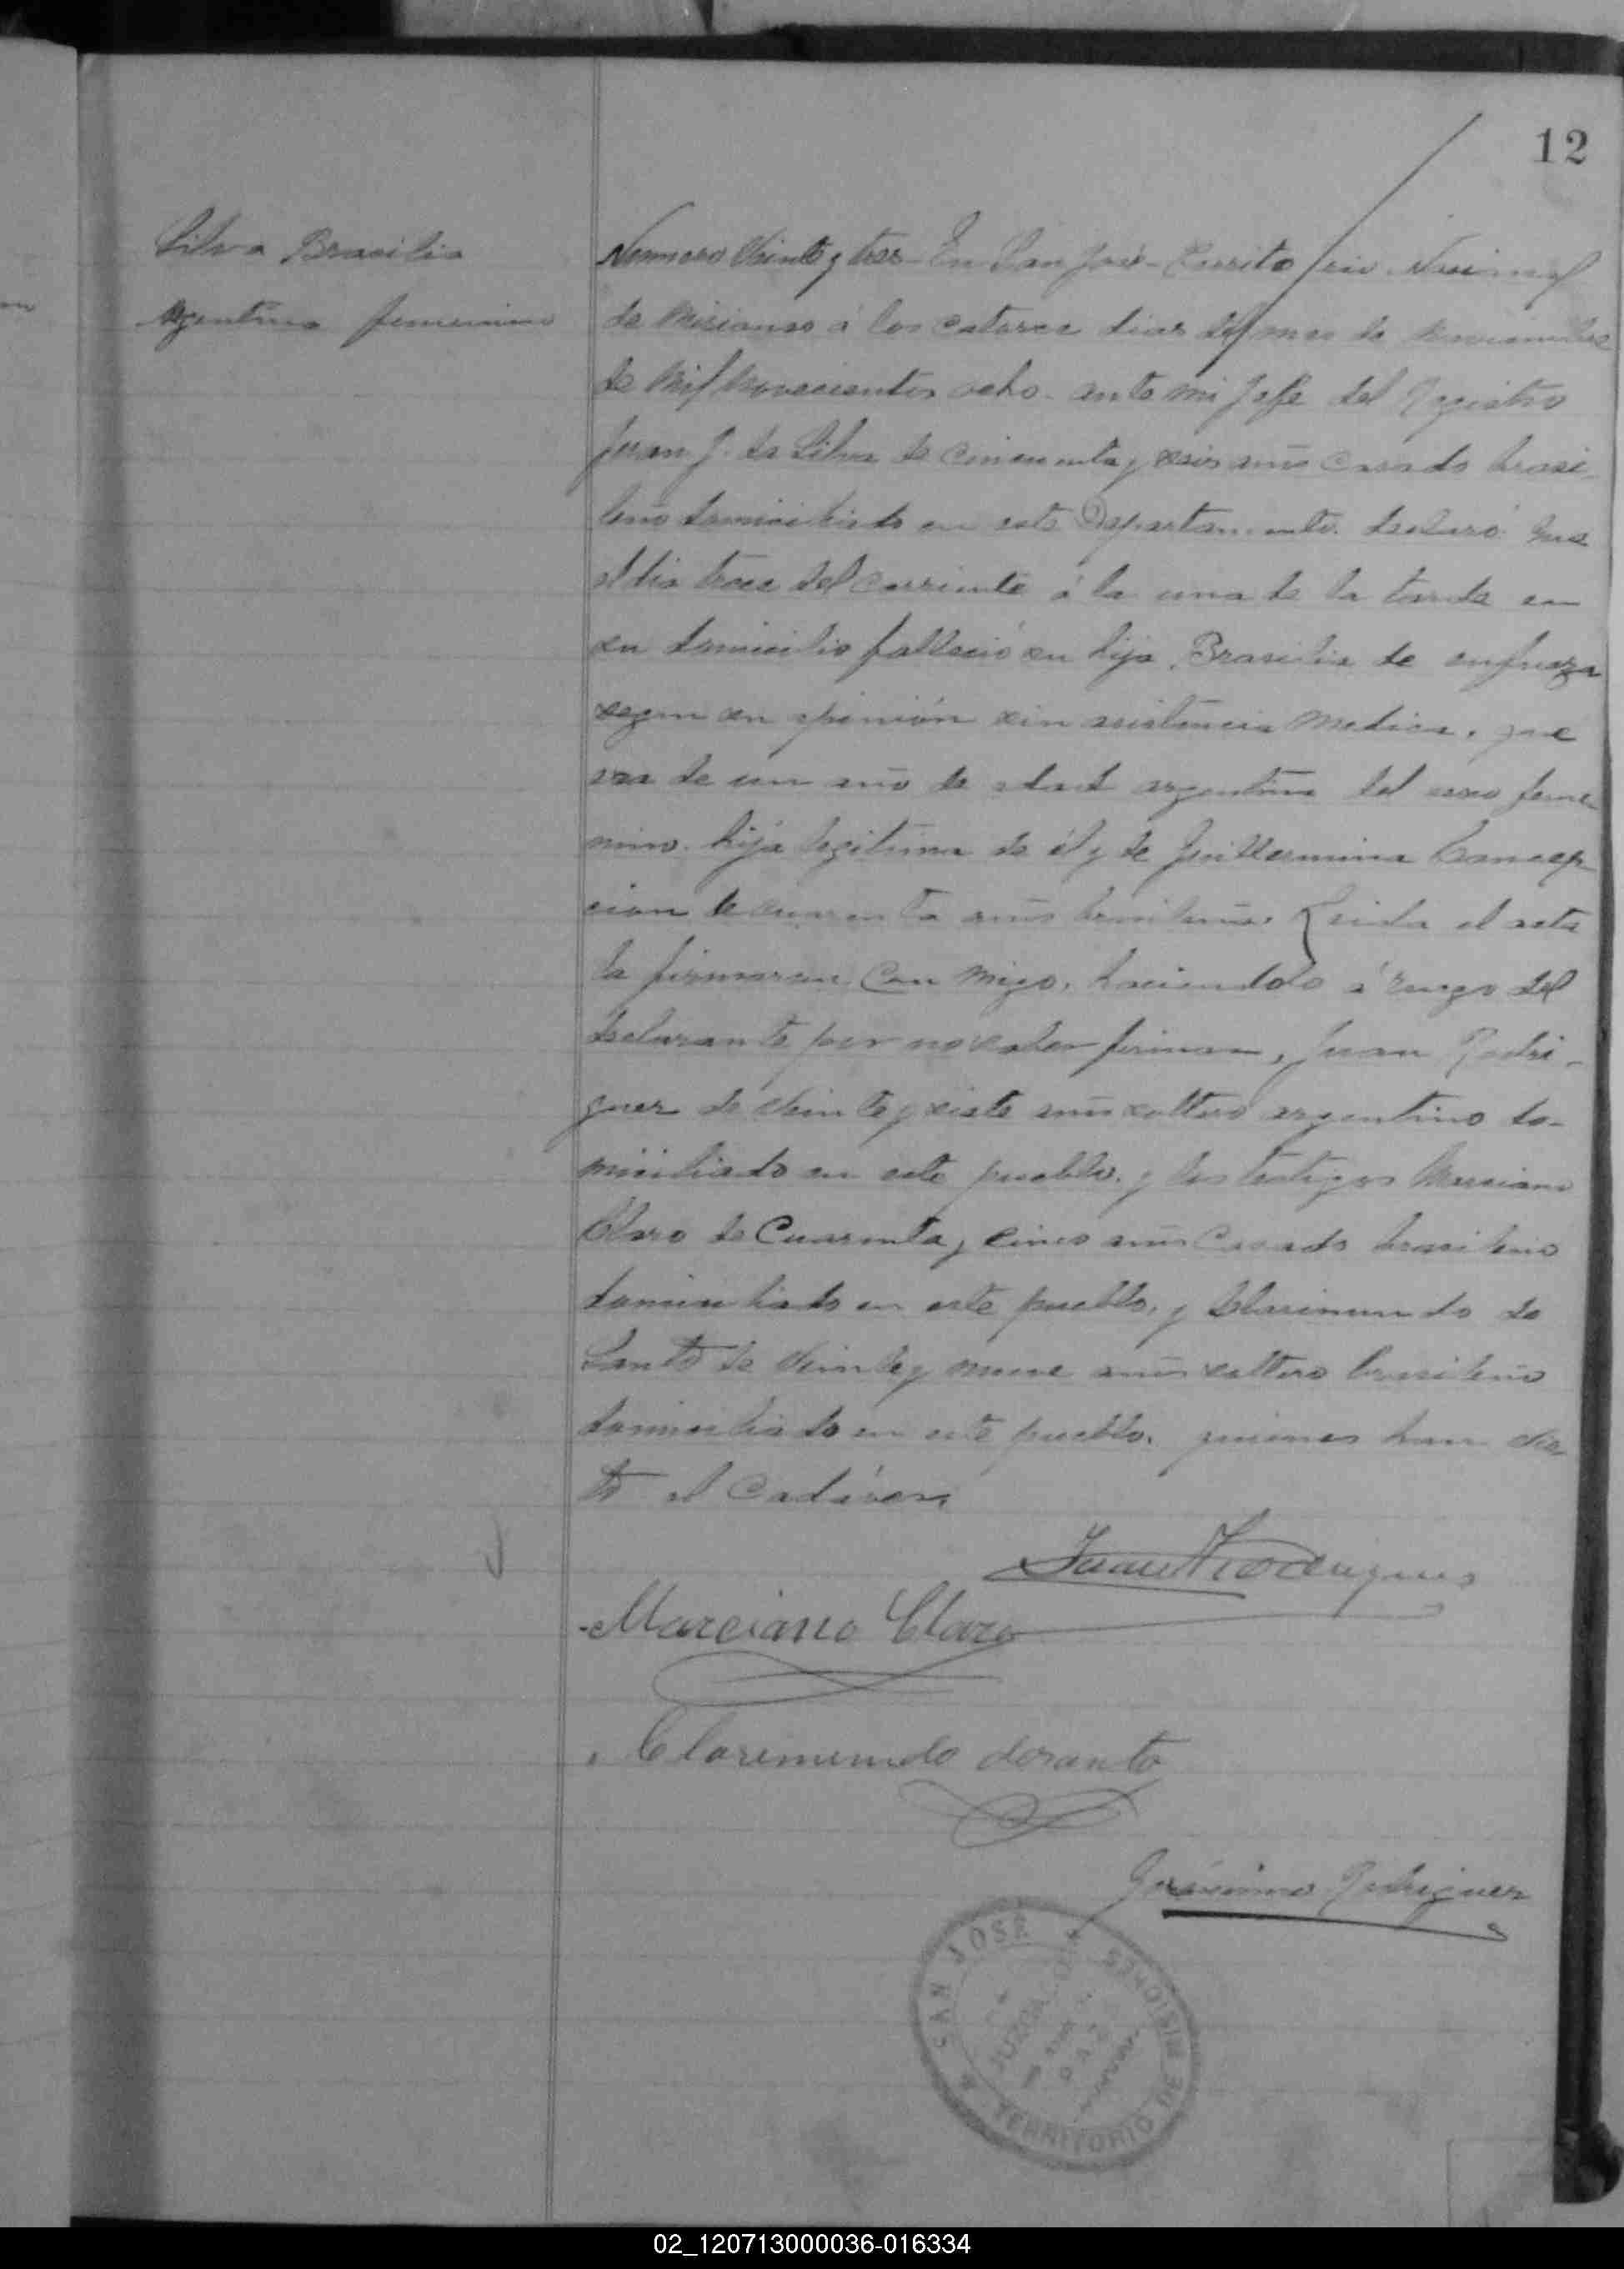 12
Silva Brasilia
argentina femenino
Numero Veinte y tres En San José - Territorio Nacional
de Misiones á los catorce dias del mes de Noviembre
de Mil Novecientos ocho. ante mi Jefe del Registro
Juan J. da Silva de cincuenta y seis años casado brasi-
leño domiciliado en este Departamento. declaró: que
el dia trece del corriente á la una de la tarde en
su domicilio falleció su hija Brasilia de
segun su opinión sin asistencia medica, que
era de un año de edad argentina del sexo feme-
nino. hija legitima de él y de Guillermina Concep-
cion de cuarenta años brasileña. Leida el acta
la firmaron con migo, haciendolo á ruego del
declarante por no saber firmar, Juan Rodri-
guez de veinte y siete años soltero argentino do-
miciliado en este pueblo. y los testigos Marciano
Claro de Cuarenta y cinco años Casado brasileño
domiciliado en este pueblo, y Clarimundo do
Santo de Veinte y nueve años soltero brasileño
domiciliado en este pueblo. quienes han vis
to el Cadáver.
Juan Rodrigues
Marciano Claro
Claremundo dosanto
Gerónimo Rodriguez
SAN JOSÉ
TERRITORIO DE MISIONES
02_120713000036-016334